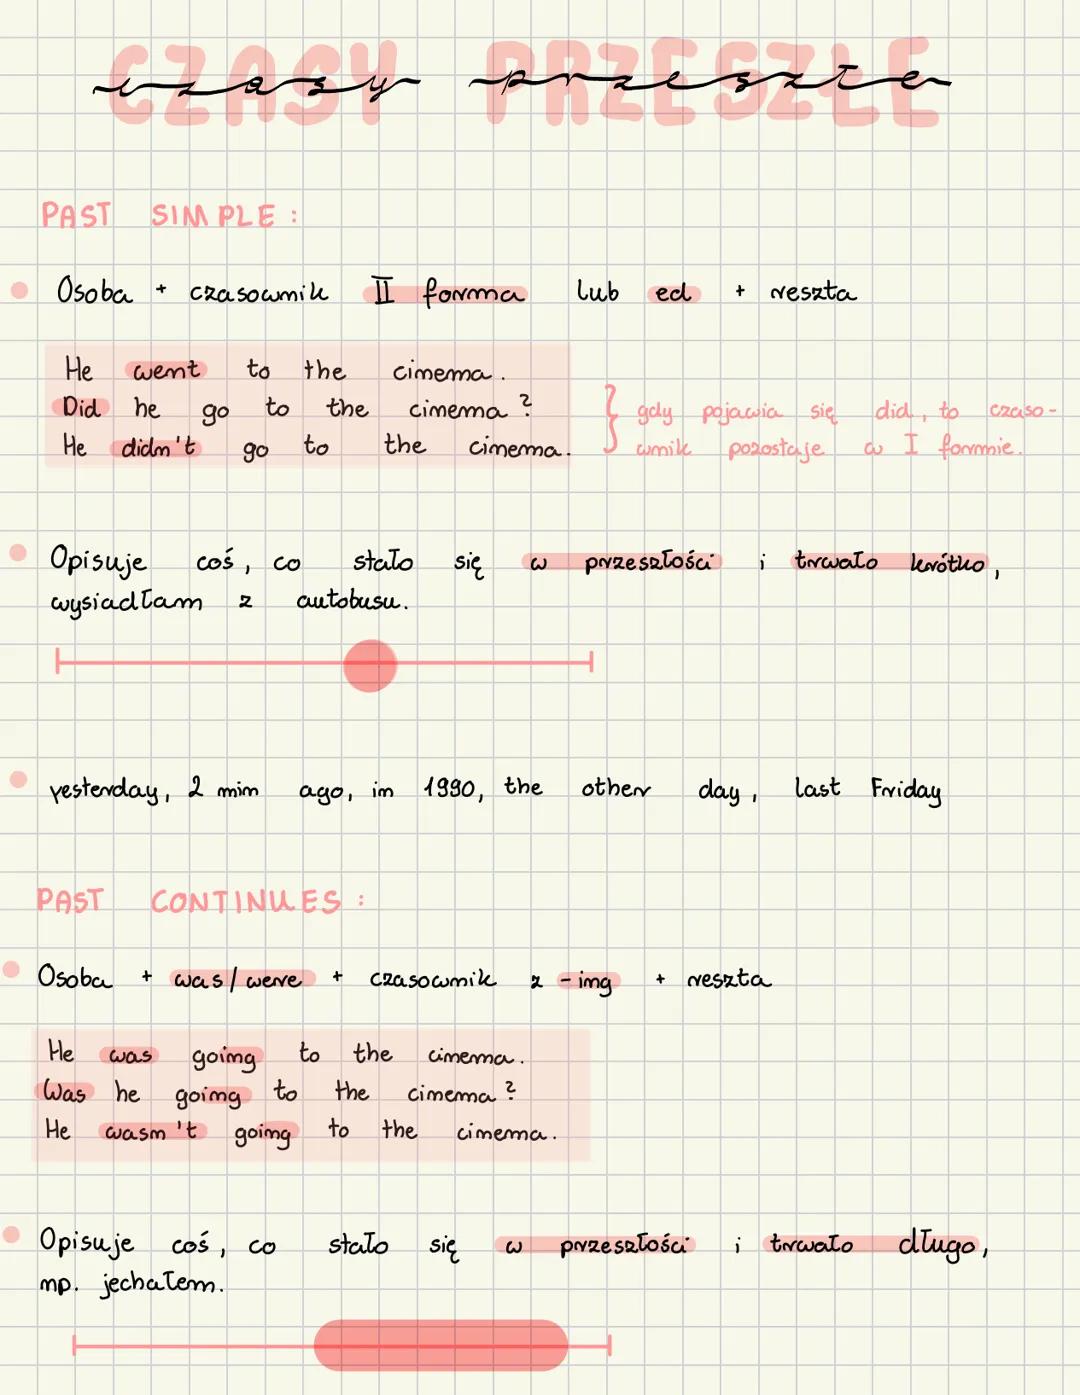 czasy przeszłe
PAST SIMPLE:
Osoba + czasownik II forma lub ed + reszta
He went to the cinema.
Did he go to the cinema?
He didn't go to the cinema.
gdy pojawia się did, to czaso-
wnik pozostaje w I formie.
Opisuje coś, co stało się w przeszłości i trwało krótko,
wysiadłam z autobusu.
yesterday, 2 min ago, in 1990, the other day, last Friday
PAST CONTINUES:
Osoba + was/were + czasownik z -ing + reszta
He was going to the cinema.
Was he going to the cinema?
He wasn't going to the cinema.
Opisuje coś, co stało się w przeszłości i trwało długo,
np. jechałem.